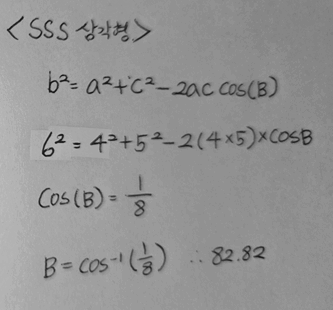 <SSS 삼각형>
b² = a² + c² - 2ac cos(B)
6² = 4² + 5² - 2(4×5)×cosB
Cos(B) = 1/8
B = cos⁻¹(1/8) ∴ 82.82